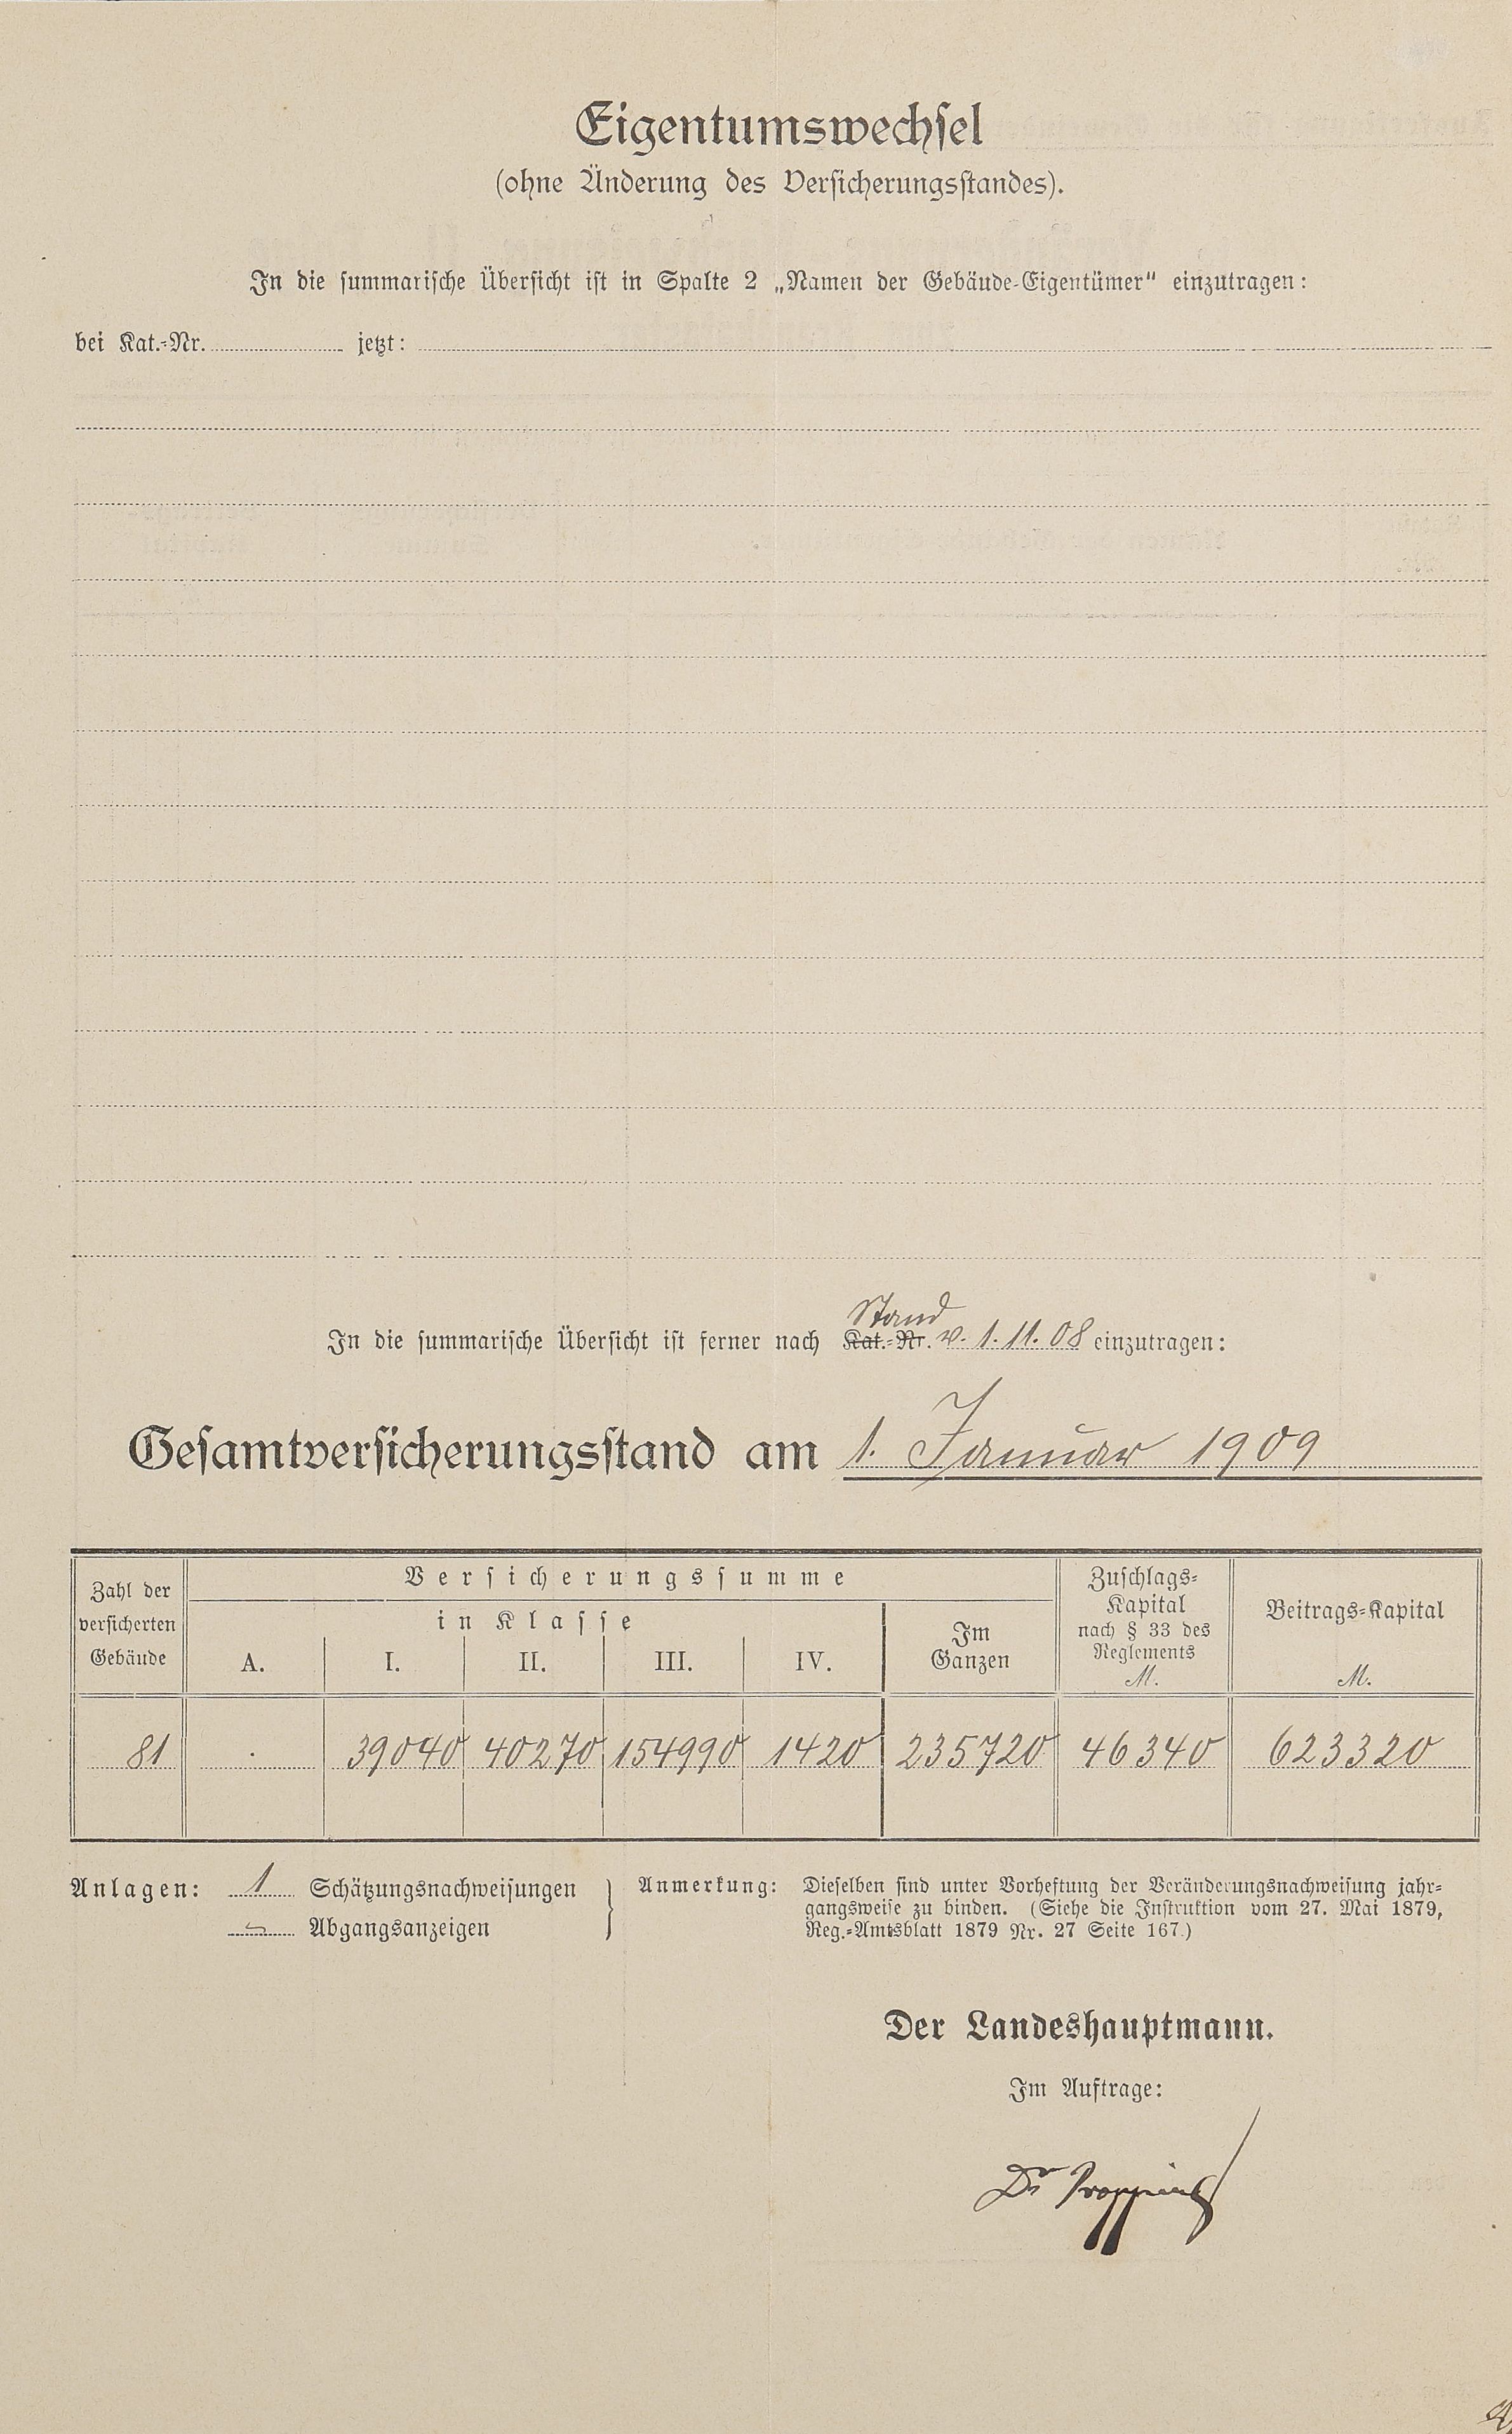 Eigentumswechsel
(ohne Änderung des Versicherungsstandes).
In die summarische Übersicht ist in Spalte 2 „Namen der Gebäude-Eigentümer“ einzutragen:
bei Kat.-Nr. jetzt:
Stand
In die summarische Übersicht ist ferner nach Kat.-Nr. v. 1.11.08 einzutragen:
Gesamtversicherungsstand am 1. Januar 1909
Zahl der versicherten Gebäude
Versicherungssumme
in Klasse
A. I. II. III. IV.
Im Ganzen
Zuschlags-Kapital nach § 33 des Reglements M.
Beitrags-Kapital M.
81 . 39040 40270 154990 1420 235720 46340 623320
Anlagen: 1 Schätzungsnachweisungen
Abgangsanzeigen
Anmerkung: Dieselben sind unter Vorheftung der Veränderungsnachweisung jahr-
gangsweise zu binden. (Siehe die Instruktion vom 27. Mai 1879,
Reg.-Amtsblatt 1879 Nr. 27 Seite 167.)
Der Landeshauptmann.
Im Auftrage:
Dr